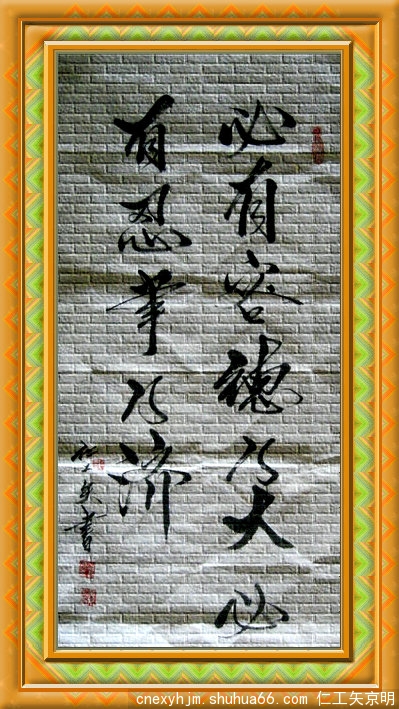 必有容德乃大必
有忍事乃济
仁工矢書
cnexyhjm.shuhua66.com 仁工矢京明